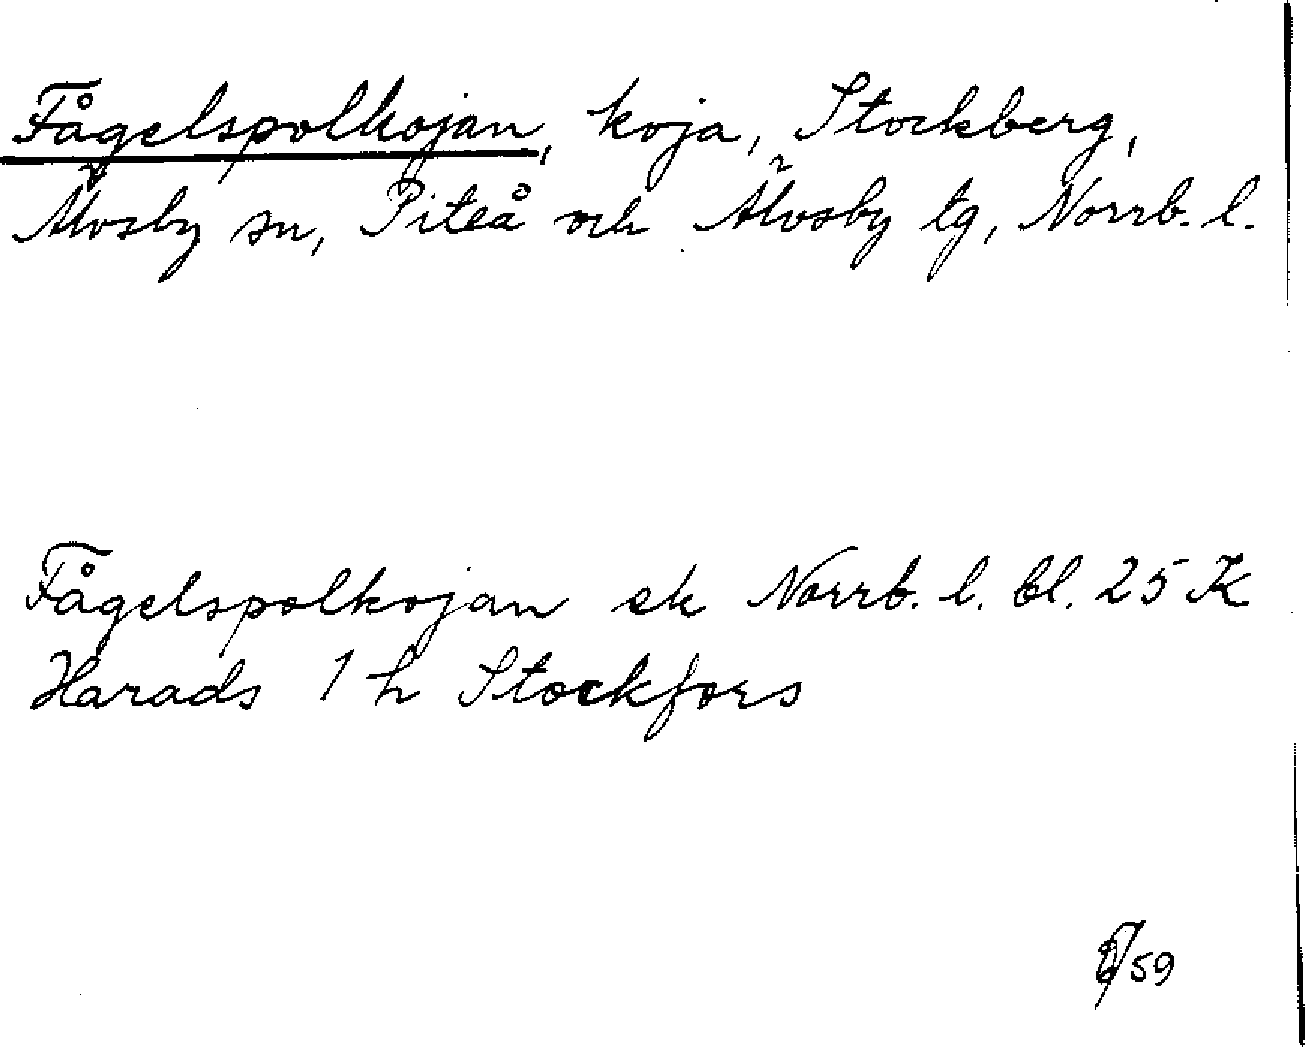 Fågelspolkojan, koja, Stockberg,
Älvsby sn, Piteå och Älvsby tg, Norrb. l.
Fågelspolkojan ek Norrb. l. bl. 25 K
Harads 1 h Stockfors
59